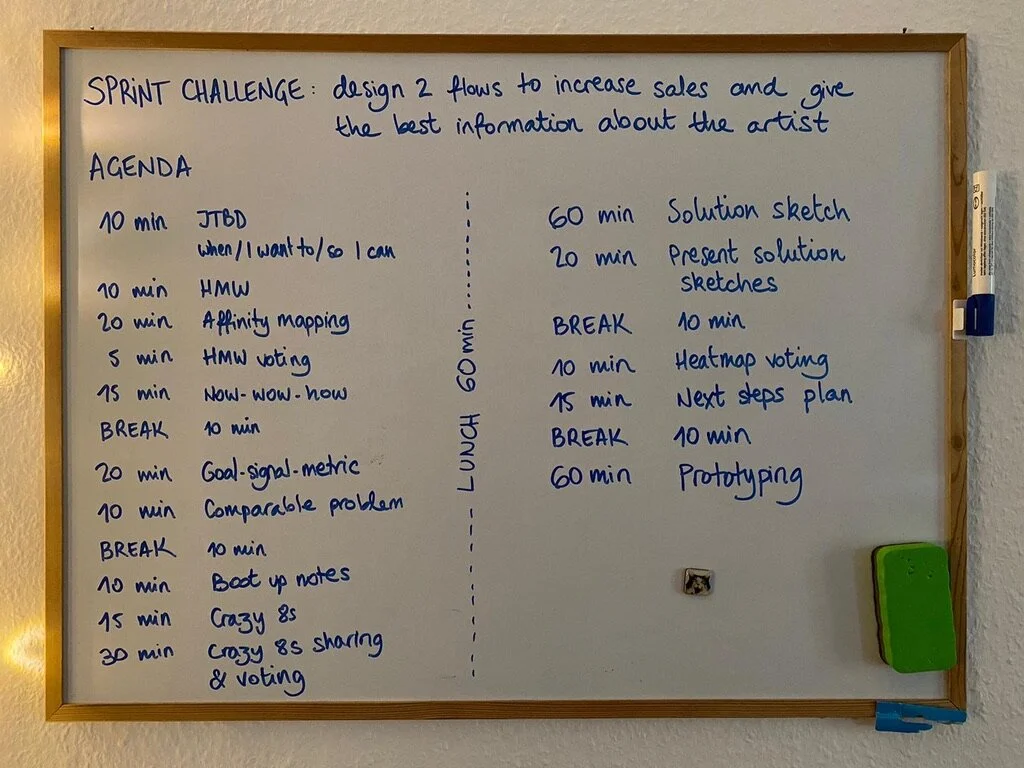 SPRINT CHALLENGE: design 2 flows to increase sales and give
the best information about the artist
AGENDA
10 min JTBD
when/I want to/so I can
10 min HMW
20 min Affinity mapping
5 min HMW voting
15 min Now-wow-how
BREAK 10 min
20 min Goal-signal-metric
10 min Comparable problem
BREAK 10 min
10 min Boot up notes
15 min Crazy 8s
30 min Crazy 8s sharing
& voting
LUNCH 60 min
60 min Solution sketch
20 min Present solution
sketches
BREAK 10 min
10 min Heatmap voting
15 min Next steps plan
BREAK 10 min
60 min Prototyping